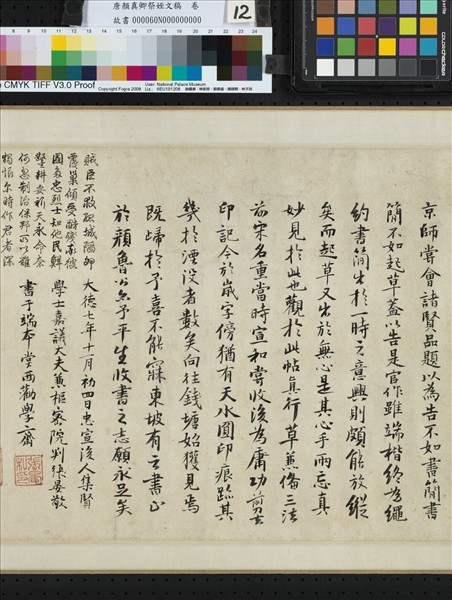 唐顏真卿祭姪文稿　卷
故書 000060N000000000
12
CMYK TIFF V3.0 Proof
Copyright Fogra 2008
User: National Palace Museum
colorchecker
京師嘗會諸賢品題以為告不如書簡書
簡不如起草蓋以告是官作雖端楷終為繩
約書簡出於一時之意興則頗能放縱
矣而起草又出於無心是其心手兩忘真
妙見於此也觀於此帖真行草兼備三法
前宋名重當時宣和嘗收後為庸功剪去
印記今於嵗字傍猶有天水圓印痕跡其
幾於湮没者數矣向往錢塘始獲見焉
既歸於予喜不能寐東坡有云書止
於顏魯公矣予平生收書之志願永足矣
大德七年十一月初四日忠宣後人集賢
學士嘉議大夫兼樞密院判張晏敬
書于端本堂西勸學之齋
賊臣不救孤城陷卵
覆巢傾受
國表忠烈士知他民